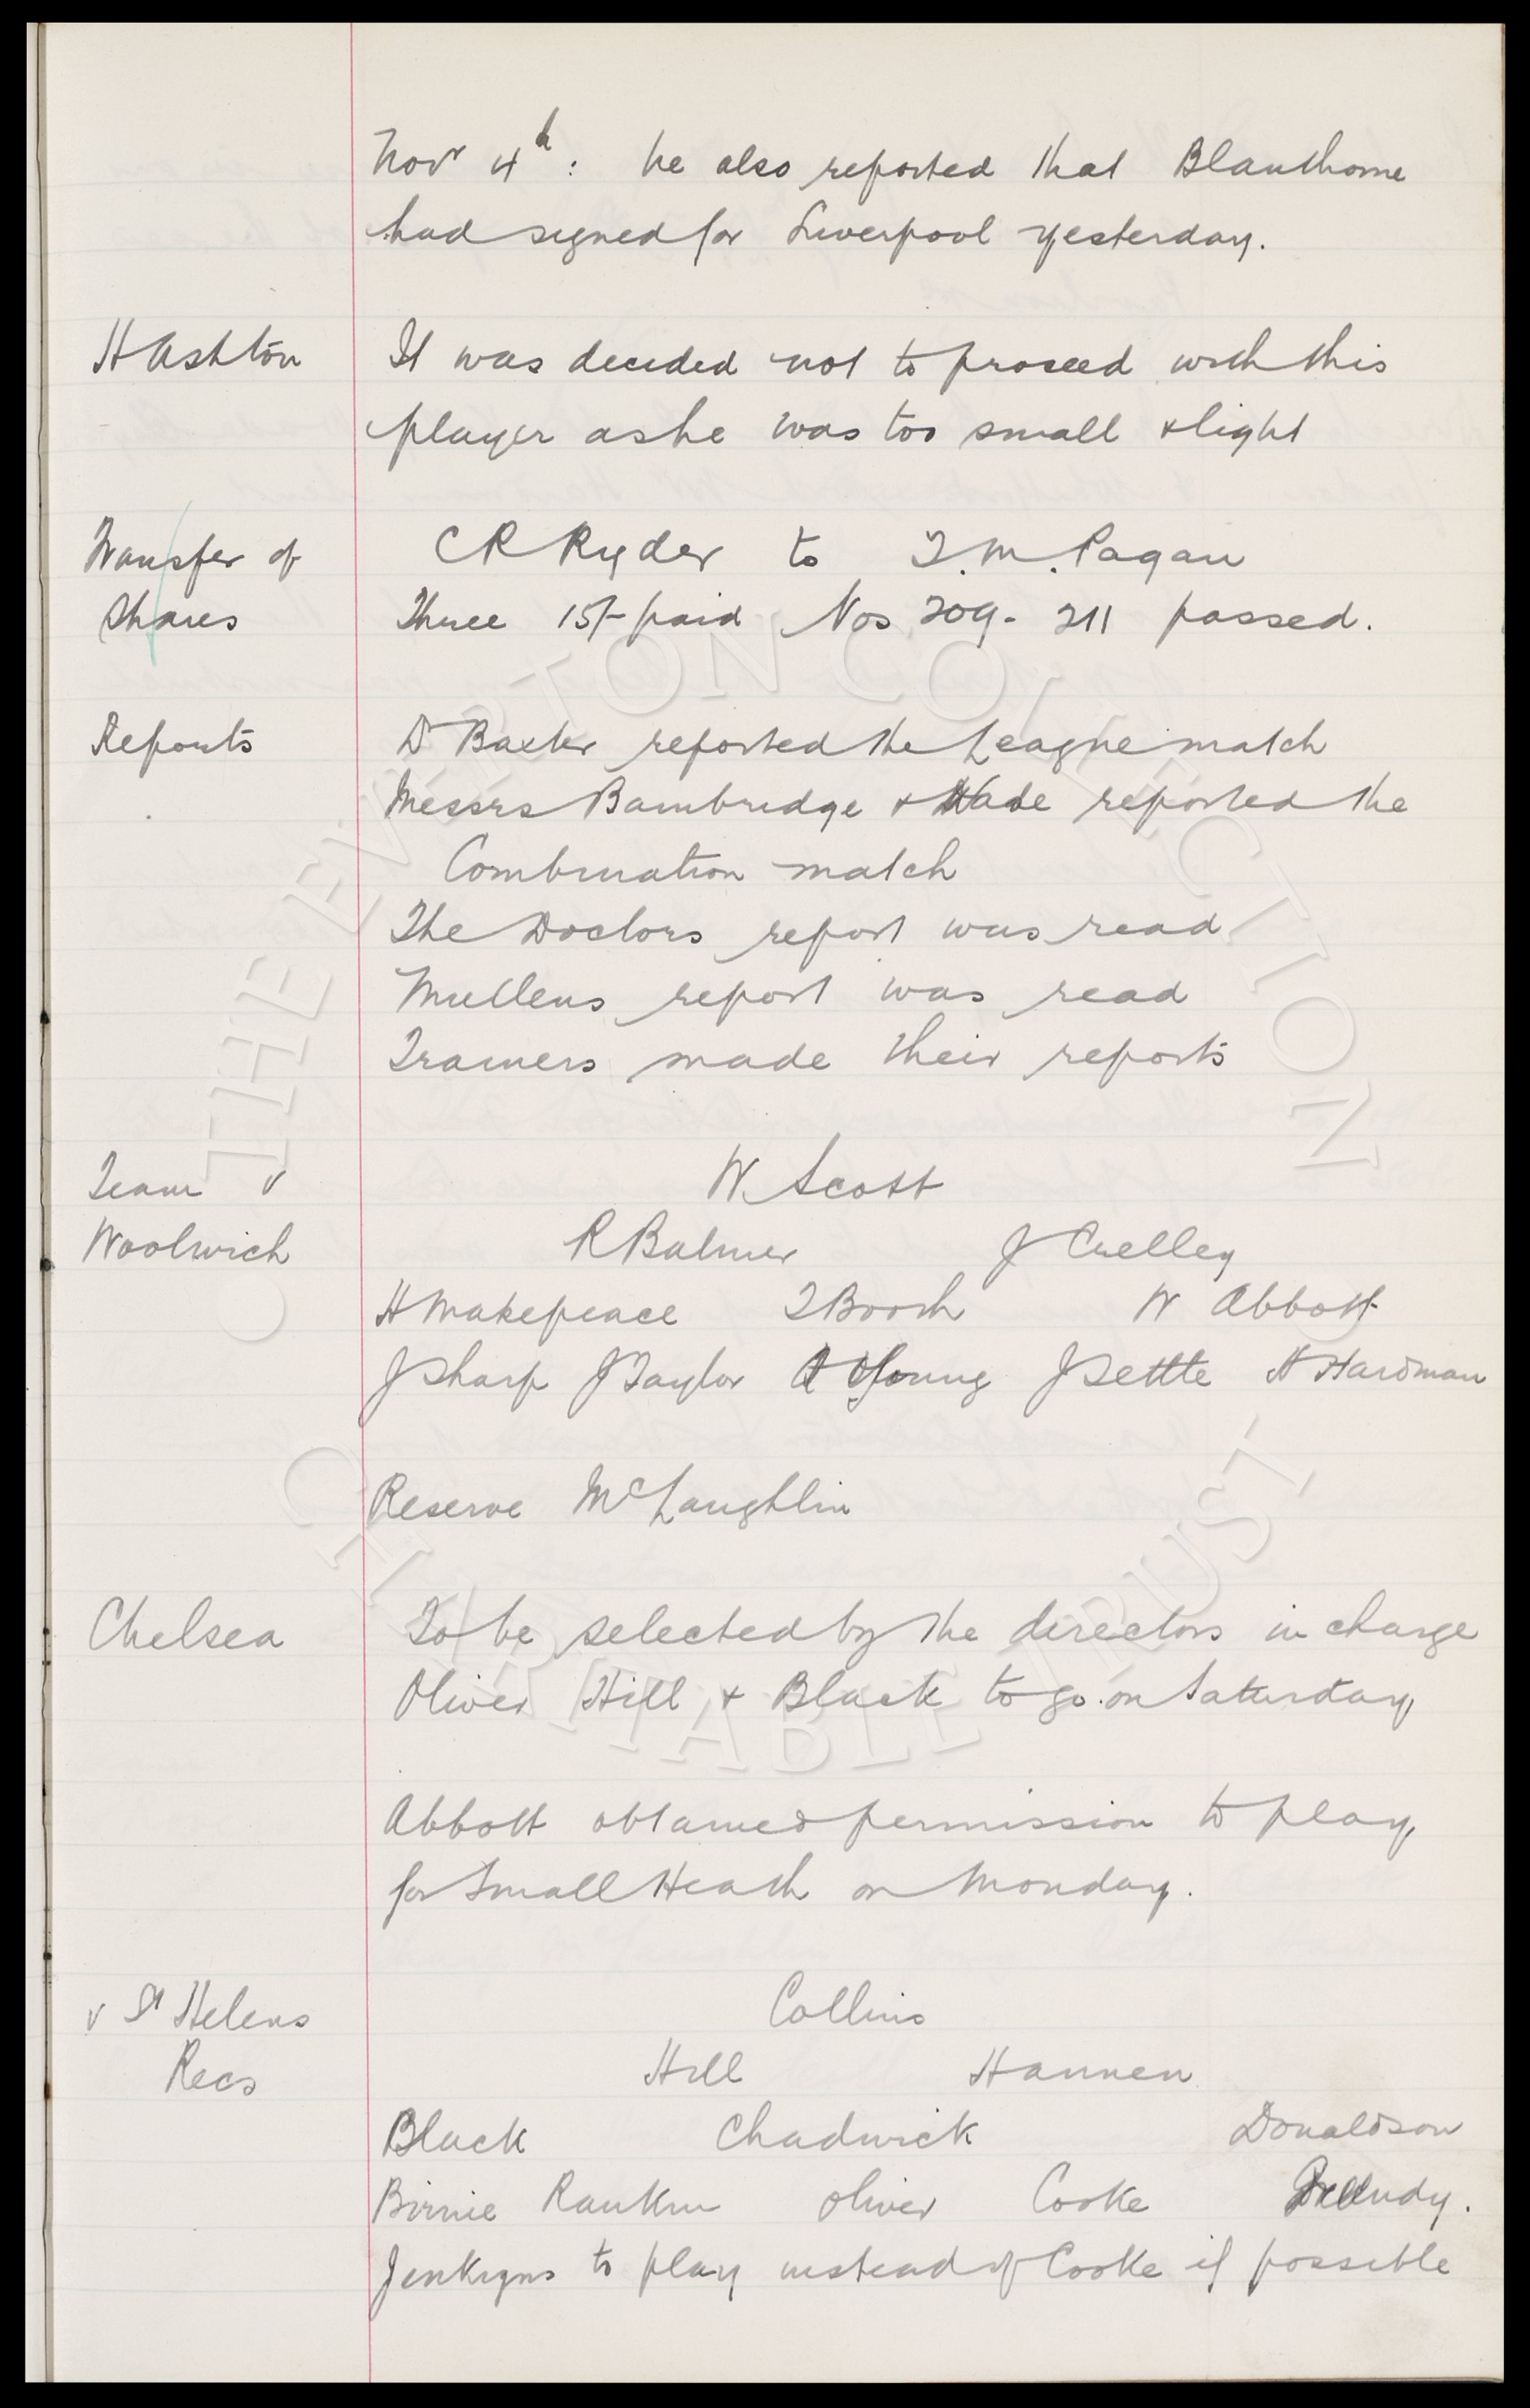 Novr 4th: he also reported that Blanthorne
had signed for Liverpool yesterday.
H Ashton It was decided not to proceed with this
player as he was too small & light
Transfer of C R Ryder to T.M. Pagan
Shares Three 15/- paid Nos 209 - 211 passed.
Reports Dr Baxter reported the League match
Messrs Bambridge & Wade reported the
Combination match
The Doctors report was read
Mullens report was read
Trainers made their reports
Team v W Scott
Woolwich R Balmer J Crelley
H Makepeace T Booth W Abbott
J Sharp J Taylor A Young J Settle H Hardman
Reserve McLaughlin
Chelsea To be selected by the directors in charge
Oliver Hill & Black to go on Saturday
Abbott obtained permission to play
for Small Heath on Monday.
v St Helens Collins
Recs Hill Hannen
Black Chadwick Donaldson
Birnie Rankin Oliver Cooke
Jenkyns to play instead of Cooke if possible
THE EVERTON COLLECTION
CHARITABLE TRUST